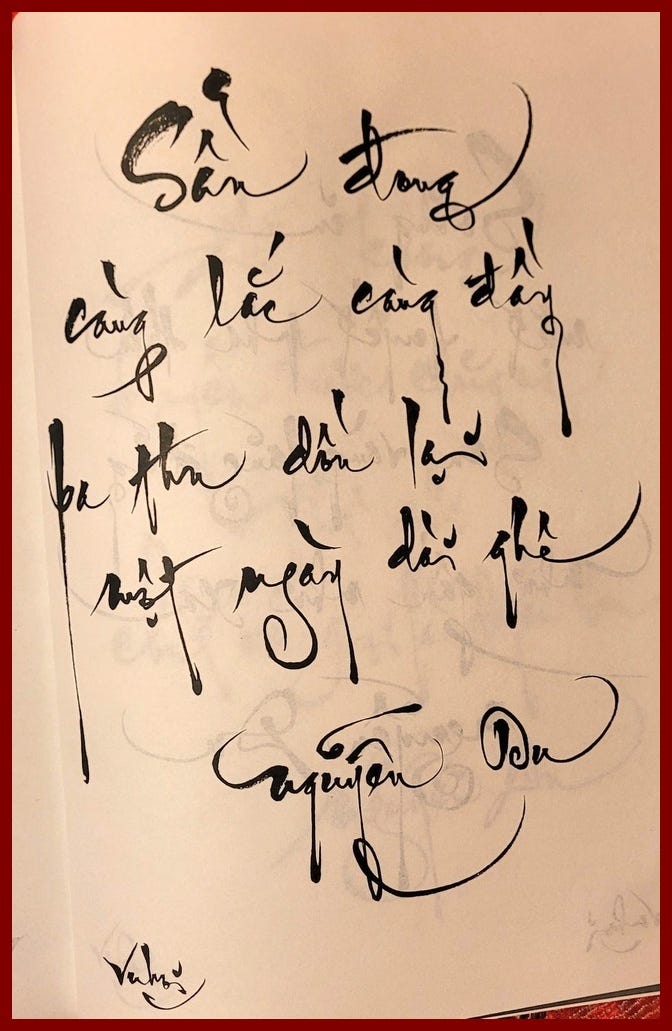 Sầu đong
càng lắc càng đầy
ba thu dồn lại
một ngày dài ghê
Nguyễn Du
Vuhối